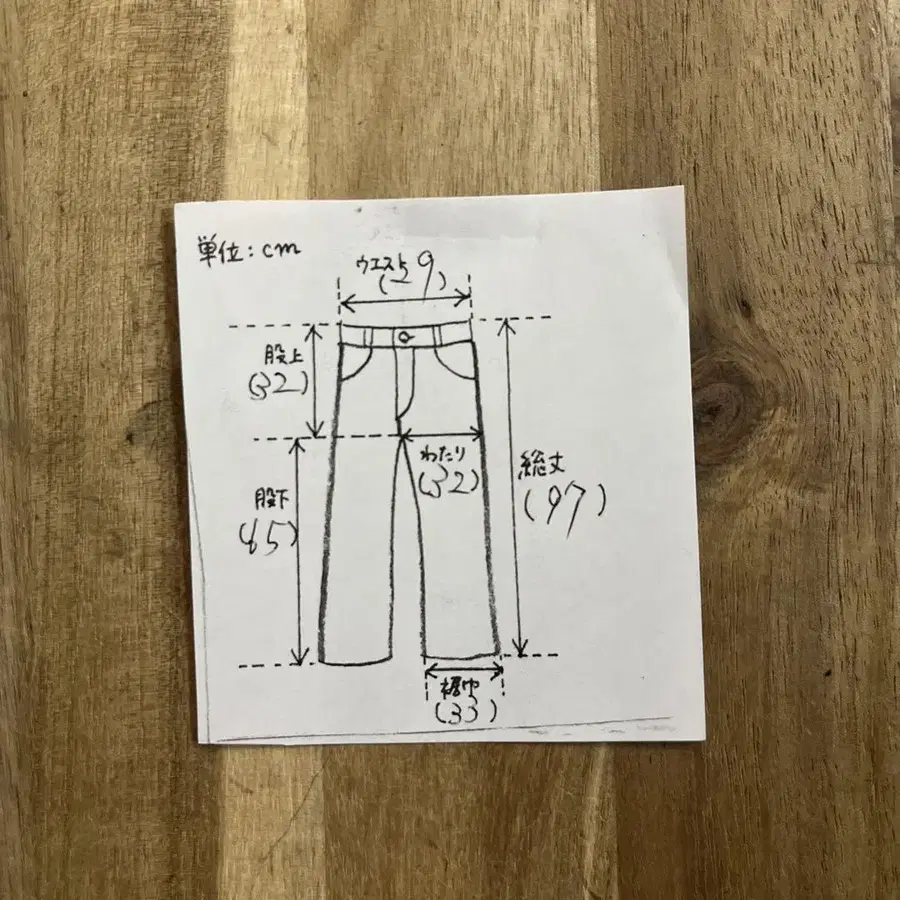 単位:cm
ウエスト
(29)
股上
(32)
わたり
(32)
総丈
(97)
股下
(65)
裾巾
(33)